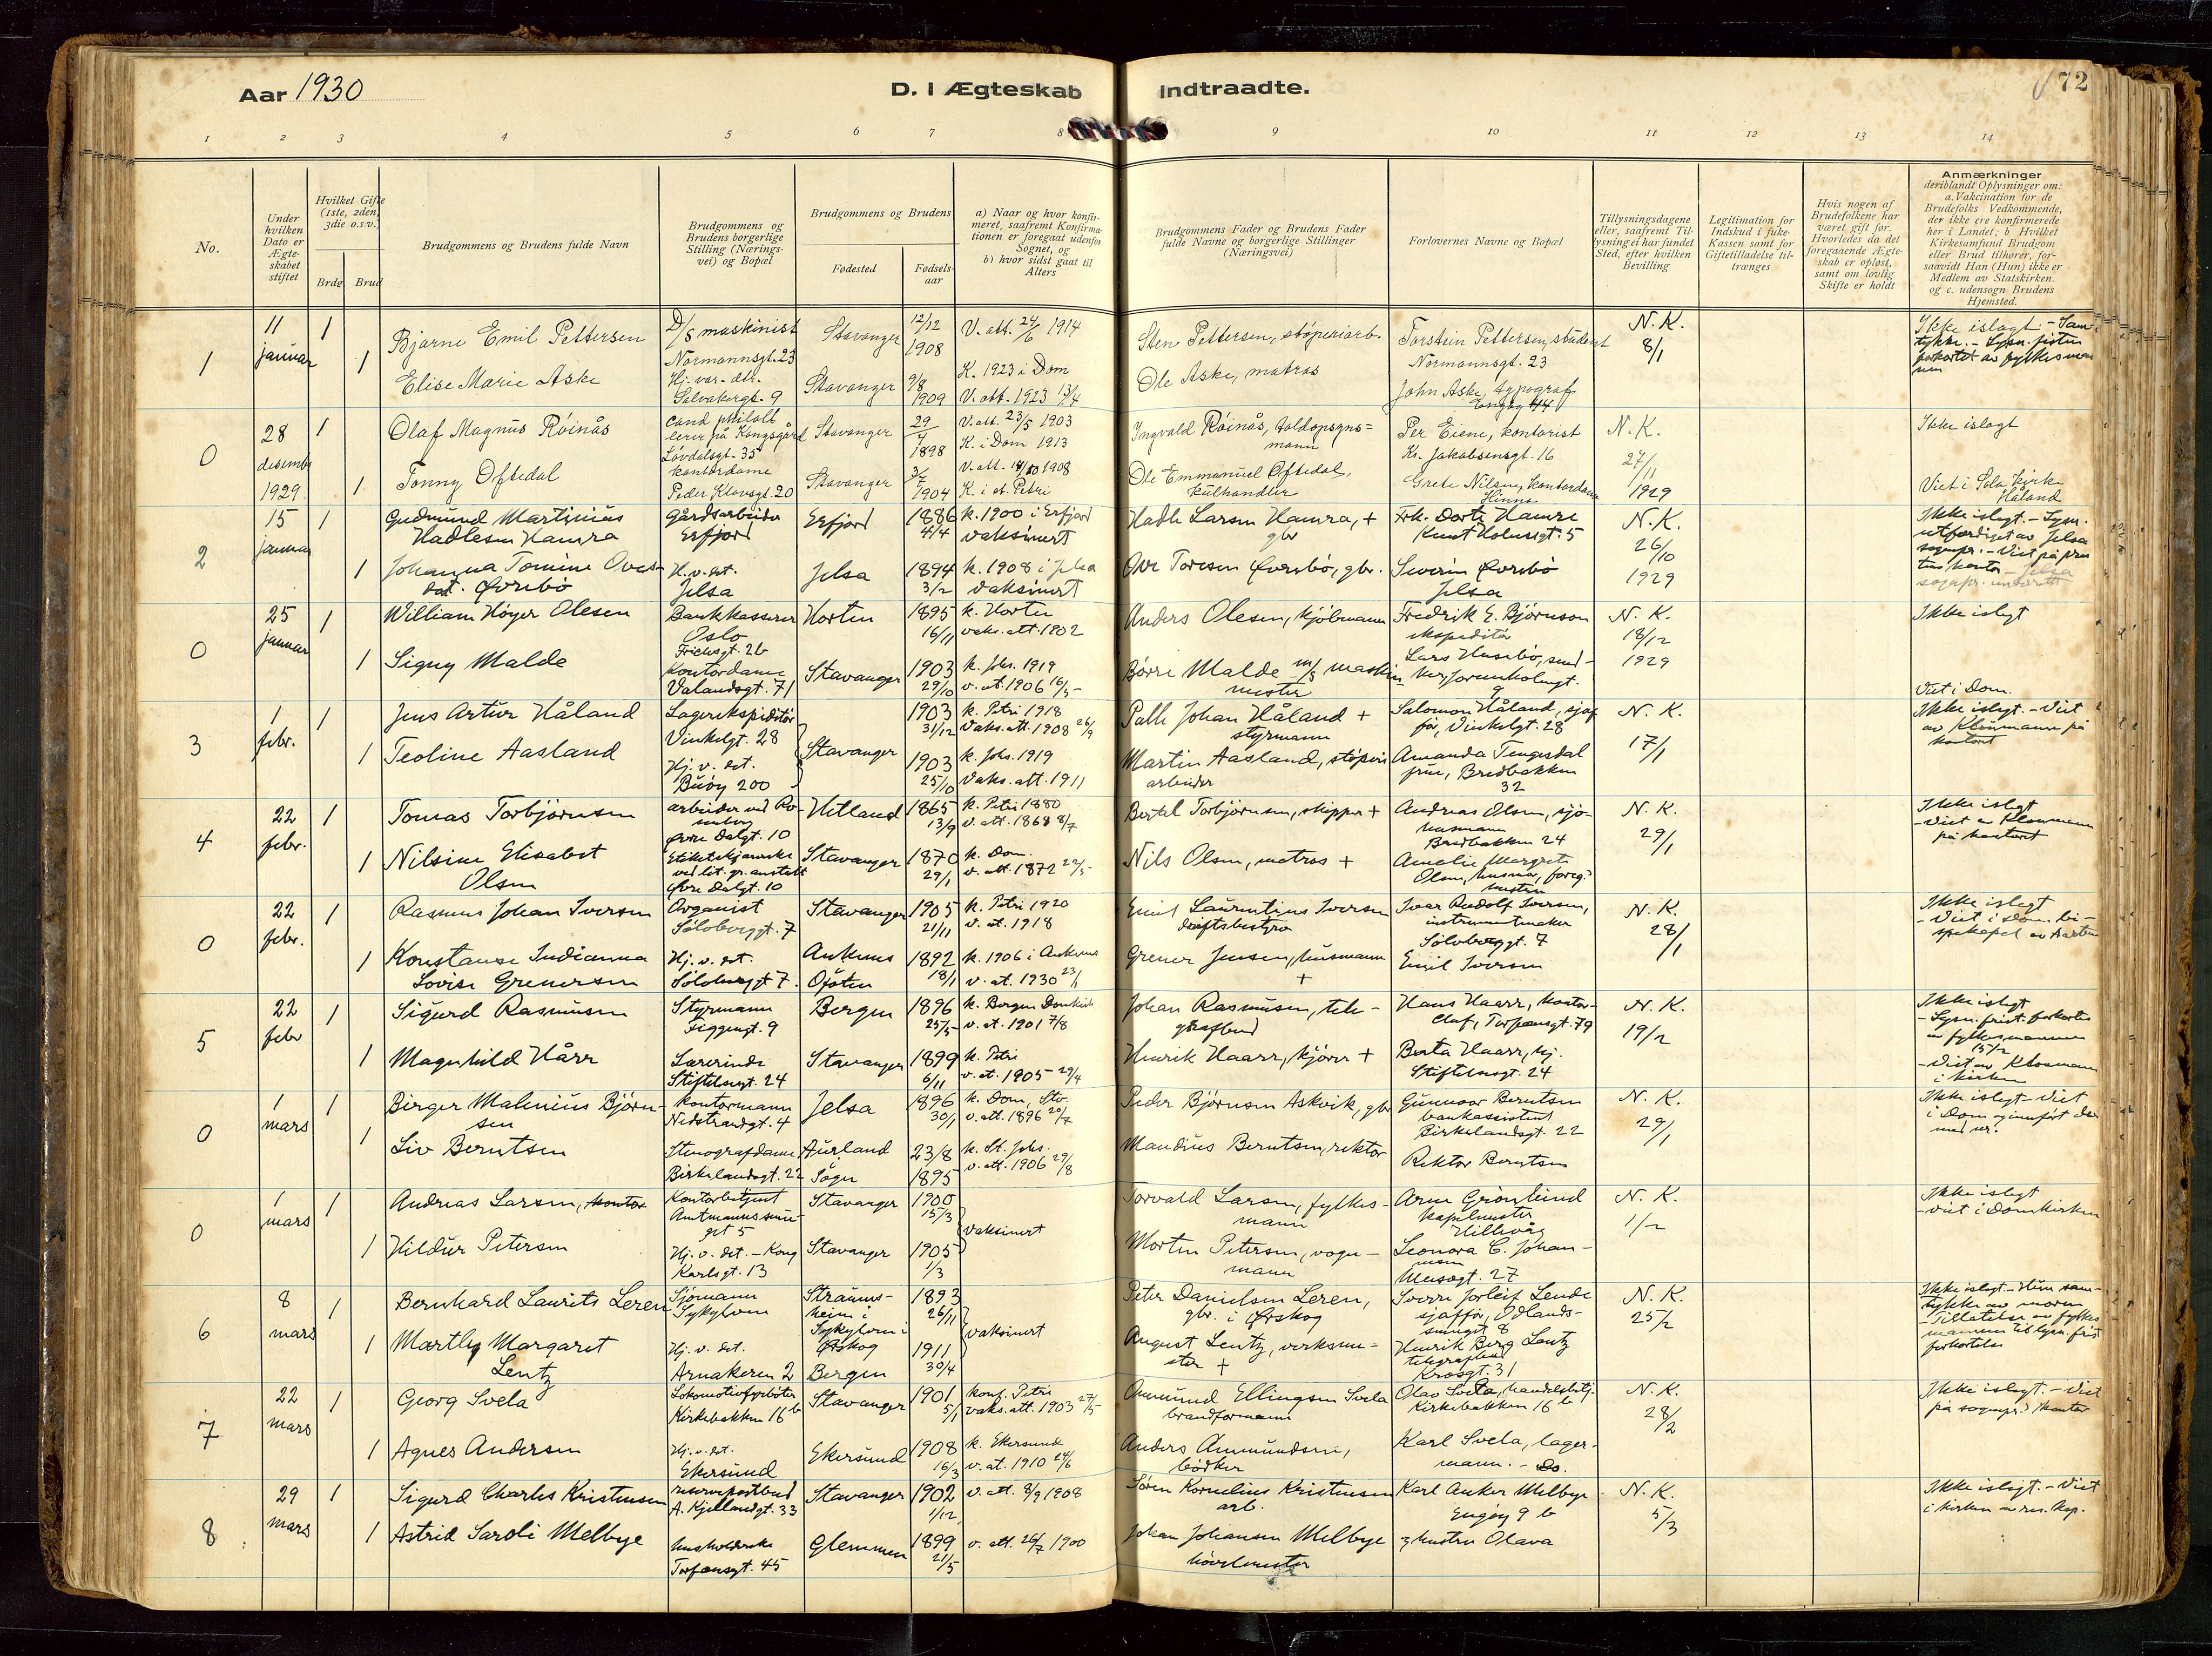 Aar 1930
D. I Ægteskab Indtraadte.
72
1 2 3 4 5 6 7 8 9 10 11 12 13 14
No.
Under hvilken Dato er Ægteskabet stiftet
Hvilket Gifte (1ste, 2den, 3die o.s.v.)
Brdg. Brud
Brudgommens og Brudens fulde Navn
Brudgommens og Brudens borgerlige Stilling (Næringsvei) og Bopæl
Brudgommens og Brudens
Fødested
Fødselsaar
a) Naar og hvor konfirmeret, saafremt Konfirmationen er foregaat udenfor Sognet, og
b) hvor sidst gaat til Alters
Brudgommens Fader og Brudens Fader fulde Navne og borgerlige Stillinger (Næringsvei)
Forlovernes Navne og Bopæl
Tillysningsdagene eller, saafremt Tillysning ei har fundet Sted, efter hvilken Bevilling
Legitimation for Indskud i fuke-Kassen samt for Giftetilladelse tiltrænges
Hvis nogen af Brudefolkene har været gift før. Hvorledes da det foregaaende Ægteskab er opløst, samt om lovlig Skifte er holdt
Anmærkninger
deriblandt Oplysninger om: a. Vakcination for de Brudefolks Vedkommende, der ikke ere konfirmerede her i Landet; b Hvilket Kirkesamfund Brudgom eller Brud tilhører, forsaavidt Han (Hun) ikke er Medlem av Statskirken. og c. udensogn Brudens Hjemsted.
1
11 januar
1
1
Bjarne Emil Pettersen
Elise Marie Aske
D/S maskinist
Normannsgt. 23
Stavanger
12/12 1908
V. att. 24/6 1914
Stavanger
9/8 1909
K. 1923 i Dom
V. att. 1923 13/4
Sten Pettersen, støperiarb.
Ole Aske, matros
Torstein Pettersen, student
Normannsgt. 23
John Aske, typograf
N.K.
8/1
Ikke i slegt
0
28 desembr 1929
1
1
Olaf Magnus Röinås
Tonny Oftedal
cand philol
lærer på Kongsgård
Lövdalsgt. 35
kontordame
Peder Klovsgt. 20
Stavanger
29/4 1898
V. att. 23/5 1903
K. i Dom 1913
Stavanger
3/7 1904
K. i st. Petri
Ingvald Röinås, toldopsynsmann
Ole Emmanuel Oftedal,
kulhandler
Per Eiene, kontorist
Kr. Jakobsensgt. 16
Grete Nilsen, kontordame
Hinna
N.K.
27/11
1929
Ikke i slegt
Viet i Sola kirke
Håland
2
15 januar
1
1
Gudmund Martinius
Hadlesen Hamra
Johanna Tomine Ovesdat. Øvrebö
Gårdsarbeider
Erfjord
Hj. v. det.
Jelsa
Erfjord
1886 4/4
k. 1900 i Erfjord
vaksinert
Jelsa
1894 3/2
k. 1908 i Jelsa
vaksinert
Hadle Larsen Hamra, + gbr
Ove Toresen Øvrebö, gbr.
Frk. Dorte Hamre
Knut Holmsgt. 5
Severin Øvrebö
Jelsa
N.K.
26/10
1929
0
25 januar
1
1
William Höyer Olesen
Signy Malde
Bankkasserer
Oslo
Frichsgt. 2b
Kontordame
Vålandsgt. 71
Horten
1895 16/11
k. Horten
vaks. att. 1902
Stavanger
1903 29/10
k. Johs. 1919
v. at. 1906 16/5
Anders Olesen, kjöbmann
Börre Malde m/s maskinmester
Fredrik E. Björnson
ekspeditör
N. K.
18/12
1929
Ikke i slegt
Viet i Dom.
3
1 febr.
1
1
Jens Artur Håland
Teoline Aasland
Lagerekspeditör
Vinkelgt. 28
Hj. v. det.
Buöy 200
Stavanger
1903 31/12
k. Petri 1918
Vaks. att. 1908 26/9
1903 25/10
k. Johs. 1919
Vaks. att. 1911
Palle Johan Håland +
styrmann
Martin Aasland, støperiarbeider
Salomon Håland, sjaför, Vinkelgt. 28
Amanda Tengesdal
frue, Bredbakken 32
N. K.
17/1
Ikke i slegt. - Viet
av Klosmann på
kontoret
4
22 febr.
1
1
Tomas Torbjörnsen
Nilsine Elisabet
Olsen
Øvre Dalgt. 10
Øvre Dalgt. 10
Hetland
1865 13/9
k. Petri 1880
v. att. 1868 8/7
Stavanger
1870 29/1
k. Dom.
v. att. 1872 22/5
Bertel Torbjörnsen, skipper +
Nils Olsen, matros +
Andreas Olsen, sjömann
Bredbakken 24
N. K.
29/1
Ikke i slegt
- Viet av Klosmann
på kontoret
0
22 febr.
1
1
Rasmus Johan Iversen
Konstanse Indianna
Lovise Grenersen
Organist
Sölvberggt. 7
Hj. v. det.
Sölvberggt 7.
Stavanger
1905 21/11
k. Petri 1920
v. at. 1918
Ankenes
Ofoten
1892 18/1
k. 1906 i Ankenes
v. at. 1930 23/1
Emil Laurentius Iversen
driftsbestyrer
Grener Jensen, husmann
+
Ivar Rudolf Iversen,
instrumentmaker
Sölvberggt. 7
Emil Iversen
N. K.
28/1
Ikke i slegt
5
22 febr
1
1
Sigurd Rasmussen
Magnhild Hårr
Styrmann
Figgengt. 9
Lærerinde
Stiftelsesgt. 24
Bergen
1896 25/5
k. Bergen Domkirk
v. at. 1901 7/8
Stavanger
1899 6/11
k. Petri
v. at. 1905 29/4
Johan Rasmussen, telegrafbud
Henrik Haarr, kjörer +
Hans Haarr, kontorchef, Torfæusgt. 79
Berta Haarr, hj.
Stiftelsesgt. 24
N. K.
19/2
Ikke i slegt
- Viet av Klosmann
i kirken
0
1 mars
1
1
Birger Malenius Björnsen
Liv Berntsen
Kontormann
Nedstrandgt. 4
Stenografdame
Birkelandsgt. 22
Jelsa
1896 30/1
k. Dom, Stv.
v. att. 1896 20/7
Aurland
Sogn
23/8 1895
k. St. Johs.
v. att. 1906 29/8
Peder Björnsen Askvik, gbr
Mandius Berntsen, rektor
Gunnvor Berntsen
bankassistent
Birkelandsgt. 22
Rektor Berntsen
N. K.
29/1
Ikke i slegt - Viet
i Dom og innfört der
med nr.
0
1 mars
1
1
Andreas Larsen, kontor
Hildur Petersen
Kontorbetjent
Hj. v. det. - Kong
Karlsgt. 13
Stavanger
1900 15/3
Stavanger
1905 1/3
vaksinert
Torvald Larsen, fylkesmann
Morten Petersen, vognmann
Arne Grönlund
kapelmester
Hillevåg
Leonora C. Johannesen
N. K.
1/2
Ikke i slegt
- viet i Domkirken
6
8 mars
1
1
Bernhard Laurits Leren
Martley Margaret
Lentz
Sjömann
Sykylven
Hj. v. det.
Arnakeren 2
Straumsheim i
Sykylven i
Ørskog
1893 26/11
Bergen
1911 30/4
vaksinert
Peter Danielsen Leren,
gbr. i Ørskog
August Lentz, verksmester +
Sverre Jorleif Lende
Henrik Berg Lentz
Krosgt. 31
N. K.
25/2
7
22 mars
1
1
Georg Svela
Agnes Andersen
Lokomotivfyrböter
Kirkebakken 16 b
Hj. v. det.
Ekersund
Stavanger
1901 5/1
konf. Petri
vaks. att. 1903 27/5
Ekersund
1908 16/3
k. Ekersund
v. at. 1910 24/6
Ommund Ellingsen Svela
brandformann
Anders Ammundsen,
bödker
Olav Svela, handelsbetj.
Kirkebakken 16 b
Karl Svela, lagermann. - Do.
N. K.
28/2
Ikke i slegt. - Viet
på sognepr.s kontor
8
29 mars
1
1
Sigurd Charles Kristensen
Astrid Saroli Melbye
reservepostbud
A. Kjellandsgt. 33
husholderske
Torfæusgt. 45
Stavanger
1902 1/12
v. att. 8/9 1908
Glemmen
1899 21/5
v. att. 26/7 1900
Sören Kornelius Kristensen
arb.
Johan Johansen Melbye
hövelmester
Karl Anker Melbye
Engöy 9 b
og hustru Olava
N. K.
5/3
Ikke i slegt. - Viet
i kirken av res. kap.